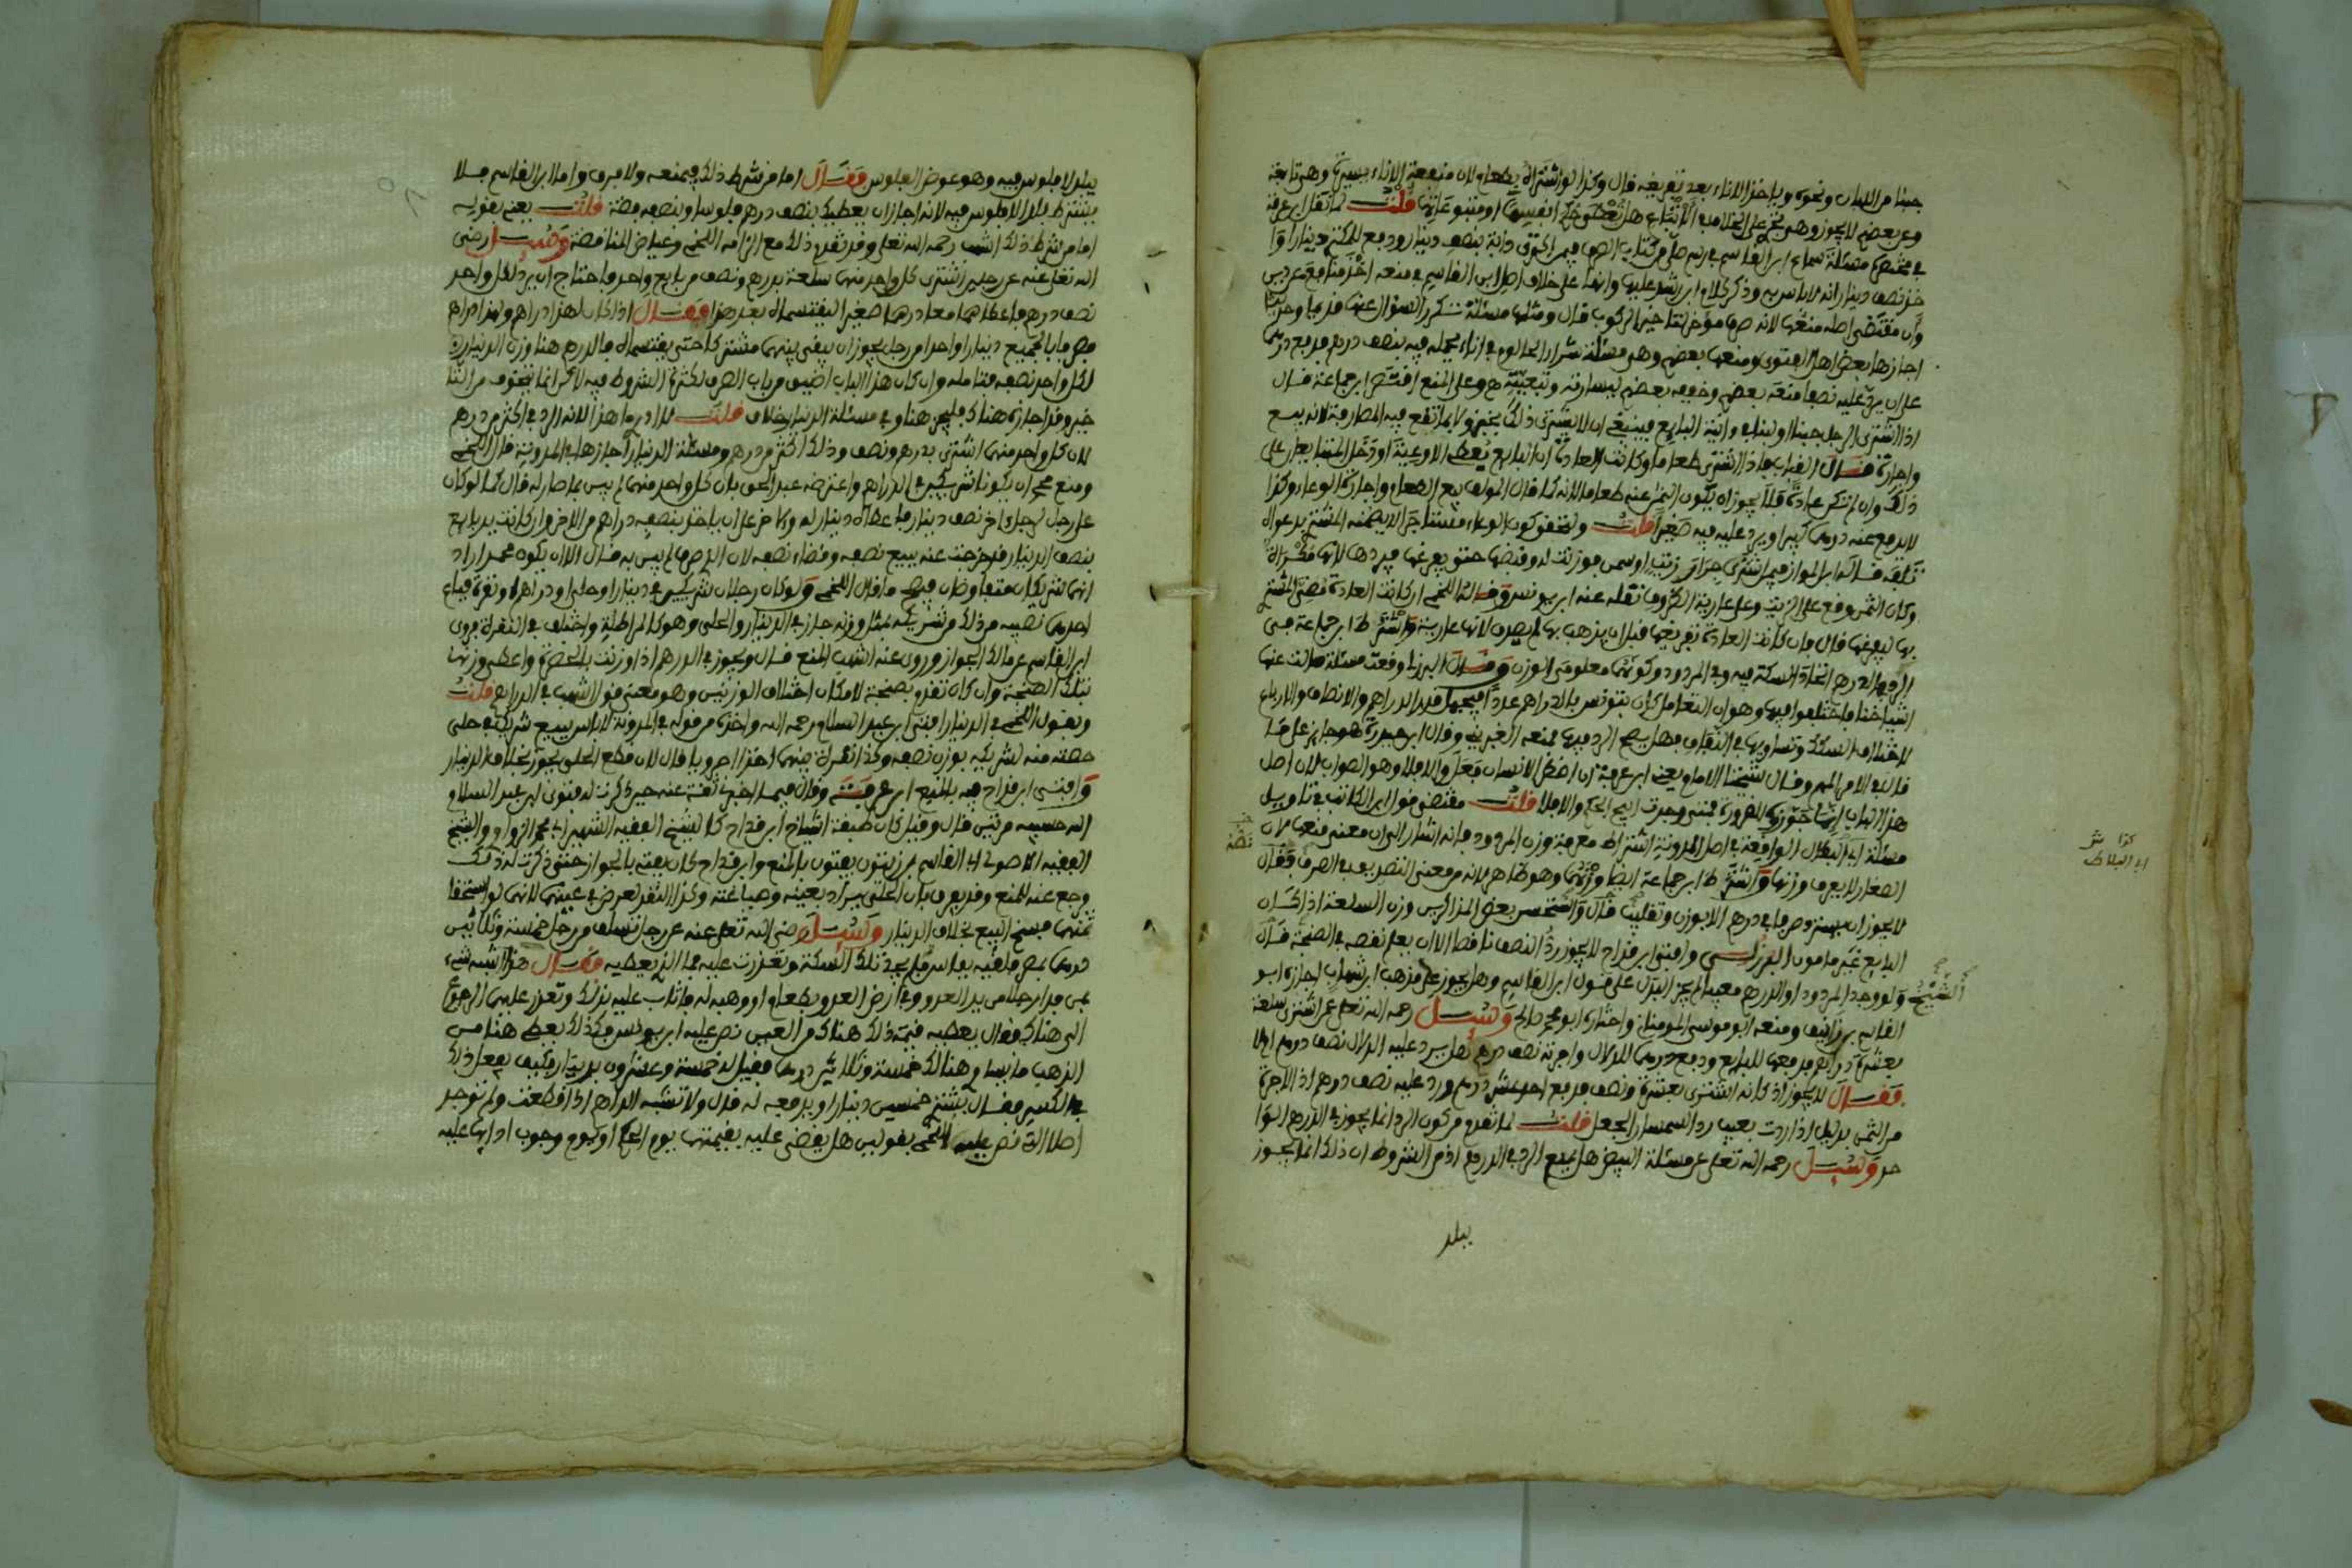 جبنا من اللبان ونحوه وياخذ الاناء بعد تفريغه قال وكذا لو اشتراه بطعام لان منفعة الاناء يسيرة وهي تابعة
وعن بعضهم لا يجوز وهي تجري على الخلاف في الاتباع هل تعطى حكم انفسها او متبوعاتها قلت لما نقل ابن عرفة
في مختصره مسئلة سماع ابن القاسم في رسم
خذ نصف دينار انه لا باس به وذكر كلام ابن رشد عليها وانها على خلاف اصل ابن القاسم في منعه
وان مقتضى اصله منعها لانه صرف موخر قال ومثلها مسئلة تكرر السؤال عنها قديما وحديثا
اجازها بعض اهل الفتوى ومنعها بعضهم وهي مسئلة شراء الحالوم في اناء يحمله فيه بنصف درهم فيدفع درهما
على ان يرد عليه نصفا منعه بعضهم وخففه بعضهم ليسارته وتبعيته وعلى المنع اقتصر ابن جماعة قال
اذا اشترى الرجل جبنا او لبنا في وانية البايع فينبغي ان لا يشتري ذلك لانه بيع
واجارة قال القباب فاذا اشترى طعاما وكانت العادة ان البايع يعطي الاوعية او دخل المتبايعان على
ذلك وان لم تكن عادة فلا يجوز ان يكون الثمن عنه طعاما لانه كما قال المولف بيع الطعام واجارة الوعاء وكذا
لا يدفع عنه درهما كبيرا ويرد عليه فيه صغيرا قلت
تلفه قاله ابن المواز فيمن اشترى جرار زيت او سمن موزنت له وقبضها حتى يفرغها فيردها
وكان الثمن وقع على الزيت وعلى عارية الظروف نقله عنه ابن يونس وقال اللخمي ان كانت العادة
بها ليفرغها قال فان كانت العادة تفريغها قبل ان يذهب بها لم يضمن لانها عارية واشترط ابن جماعة في
الرد في الدرهم اتحاد السكة فيه وفي المردود وكونهما معلومي الوزن وقال البرزلي وقعت مسئلة سالت عنها
اشياخنا فاختلفوا فيها وهو ان التعامل كان بتونس بالدراهم عددا فيجهل قدر الدراهم والانصاف والارباع
لاختلاف السكك وتساويها في النفاق فهل يصح الرد فيها فمنعه الغبريني وقال ابن حيدرة هو جايز على ما
قال في الامر المهم وقال شيخنا الامام يعني ابن عرفة ان اضطر الانسان فعل والا فلا وهو الصواب لان اصل
هذا الباب انما جوز للضرورة فمتى وجدت ابيح الحكم والا فلا قلت مقتضى قول ابن الكاتب في تاويل
مسئلة الواقعة في اصل المدونة اشتراط معرفة وزن المردود فانه اشار الى ان معنى منعها لان
الصغار لا يعرف وزنها واشترط ابن جماعة ايضا وهو ظاهر لانه من معنى النص يعد في الصرف فقال
لا يجوز ان يسترد صرفا في درهم الا بوزن وتقليب قال واستحسن بعض المذاكرين وزن السلعة اذا كان
البايع غير مامون البرزلي وافتى ابن قداح لا يجوز رد النصف ناقصا الا ان يعلم نقصه في الصنجة قال
الشيخ ولو وجد المردود او الدرهم معيبا لم يجز البدل على قول ابن القاسم وهل يجوز على مذهب ابن شهاب اجازه ابو
القاسم بن زانيف ومنعه ابو موسى المومناني واختاره ابو محمد صالح وسئل رحمه الله تعالى عمن اشترى سلعة
بعشرة دراهم فدفعها للبايع ودفع درهما للدلال واجرته نصف درهم هل يرد عليه الدلال نصف درهم ام لا
فقال لا يجوز اذ كانه اشترى بعشرة ونصف فدفع احد عشر درهما ورد عليه نصف درهم اذ الاجرة
من الثمن بدليل اذا ردت بعيب رد السمسار الجعل قلت لما تقدم من كون الرد انما يجوز في الدرهم الوا
حد وسئل رحمه الله تعالى عن مسئلة البيض هل يمنع الرد في الدرهم اذ من الشروط ان ذلك انما يجوز
ببلد
كذا
ابن البلاط
ببلد لا فلوس فيه وهو عوض الفلوس فقال اما من شرط ذلك فيمنعه ولا فرق واما ابن القاسم فلا
يشترط بلدا لا فلوس فيه لانه اجاز ان يعطيك بنصف درهم فلوسا وبنصفه فضة قلت يعني بقوله
اما من شرط ذلك اشهب رحمه الله تعالى وقد تقدم ذلك مع الزامه اللخمي وعياض المناقضة وسئل رضي
الله تعالى عنه عن رجلين اشترى كل واحد منهما سلعة بدرهم ونصف من بايع واحد فاحتاج ان يرد لكل واحد
نصف درهم فاعطاهما معا درهما صغيرا ليقتسماه بعد هذا فقال اذا كان لهذا دراهم ولهذا دراهم
فصرفا بالجميع دينارا واحدا من رجل يجوز ان يبقى بينهما مشتركا حتى يقتسماه فالدرهم هنا وزن الدينار
لكل واحد نصفه فتامله وان كان هذا الباب اضيق من باب الصرف لكثرة الشروط فيه لاكن انما يتخوف من التا
خير وقد اجازه هناك فليجز هنا وفي مسئلة الدينار خلاف قلت لا ادري ما هذا لانه الرد في اكثر من درهم
لان كل واحد منهما اشترى بدرهم ونصف وذلك اكثر من درهم ومسئلة الدينار اجازها في المدونة قال اللخمي
ومنع محمد ان يكونا شريكين في الدراهم واعترضه عبد الحق بان كل واحد منهما لم يبن بما صار له قال كما لو كان
على رجل لرجل اخر نصف دينار فاعطاه دينار له ولاخر على ان ياخذ بنصفه دراهم من الاخر وان كانت يد بايع
بنصف الدينار قد خرجت عنه ببيع نصفه وقضاء نصفه لان الصرف لم يبن به قال الا ان يكون محمد اراد
انهما شريكان متفاوضان فيصح ما قال اللخمي ولو كان رجلان شريكين في دينار او حلي او دراهم او نقرة فباع
احدهما نصيبه من ذلك من شريكه بمثل وزنه جاز في الدينار والحلي وهو كالمراطلة واختلف في النقرة فروى
ابن القاسم عن مالك الجواز وروى عنه اشهب المنع قال ويجوز في الدرهم اذا وزنت بالحضرة واعطى وزنها
بتلك الصنجة وان كان تقدم بصنجة لامكان اختلاف الوزنين وهو معنى قول اشهب في الدراهم قلت
وبقول اللخمي في الدينار افتى ابن عبد السلام رحمه الله واخذه من قوله في المدونة لا باس ببيع شريك في حلي
حصته منه لشريكه بوزن نصفه وكذا نقرة بينهما لهذا اجر ويا قال لان قطع الحلي يجوز بخلاف الدينار
وافتى ابن قداح فيه بالمنع ابن عرفة وقال فيما اخبرني ثقة عنه حين ذكرت له فتوى ابن عبد السلام
الله حسيبه مرتين قال وقبل كان طبقة اشياخ ابن قداح كالشيخ الفقيه الشهير ابي محمد الزواوي والشيخ
الفقيه الاصولي ابي القاسم بن زيتون يفتون بالمنع وابن قداح كان يفتي بالجواز حتى ذكرت له ذلك
رجع عنه للمنع وقد يفرق بان الحلي يراد بعينه وصياغته وكذا النقر لغرض في عينهما لانهما لو استحقا
ثمنهما فسخ البيع بخلاف الدينار وسئل رضي الله تعالى عنه عن رجل تسلف من رجل خمسة وثلاثين
درهما بمصر فلقيه بفاس فلم يجد تلك السكة وتعذرت عليه فما الذي يعطيه فقال هذا اشبه شيء
بمن فدا رجلا من يد العدو وفي ارض العدو بطعام او وهبه له فاثاب عليه بذلك وتعذر عليهما الرجوع
الى هناك فقال يعطيه قيمة ذلك هناك من العين نص عليه ابن يونس فكذلك يعطى هنا من
الذهب ما يساوي هنالك خمسة وثلاثين درهما فقيل له خمسة وعشرون بدينار فكيف يفعل ذلك
في الكسر فقال يشتري خمسين دينارا ويدفعه له قال ولا تشبه الدراهم اذا قطعت ولم توجد
اصلا التي نص عليه اللخمي بقولين هل يقضى عليه بقيمتها يوم الحكم او يوم وجوب ادايها عليه